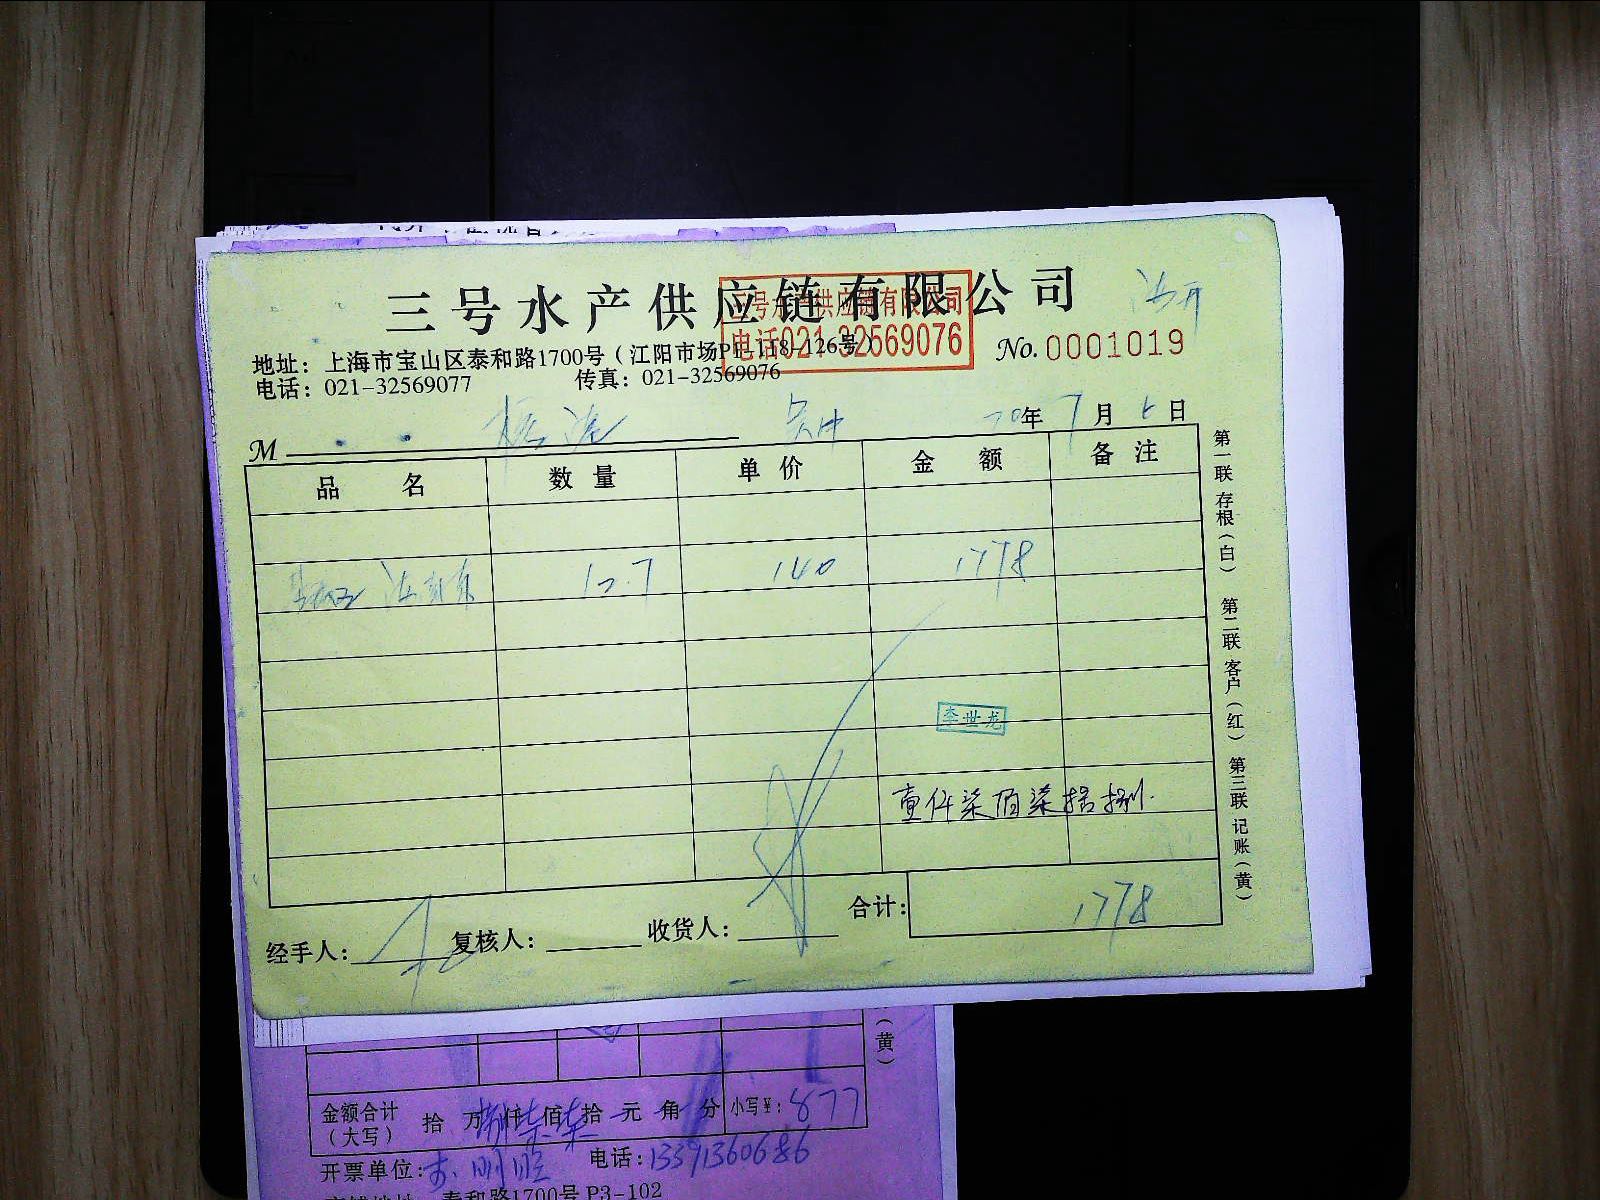 三号水产供应链有限公司
三号水产供应链有限公司
电话021-32569076
地址：上海市宝山区泰和路1700号（江阳市场P1-118-126号）
No. 0001019
电话：021-32569077 传真：021-32569076
M
20年7月6日
品名 数量 单价 金额 备注
12.7 140 1778
李世龙
壹仟柒佰柒拾捌
合计：1778
经手人： 复核人： 收货人：
第一联 存根（白） 第二联 客户（红） 第三联 记账（黄）
（黄）
金额合计（大写） 拾 万 捌仟柒佰柒拾 元 角 分 小写￥：877
开票单位： 电话：13391360686
泰和路1700号 P3-102